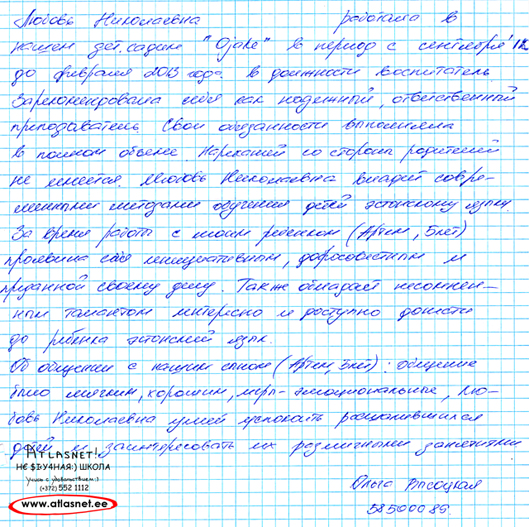 Любовь Николаевна работала в
нашем дет. садике "Ojake" в период с сентября
до февраля 2013 года в должности воспитатель.
Зарекомендовала себя как надежный, ответственный
преподаватель. Свои обязанности выполняла
в полном объеме. Нареканий со стороны родителей
не имеется. Любовь Николаевна владеет совре-
менными методами обучения детей эстонскому языку.
За время работы с моим ребенком (Артем, 5лет)
проявила себя инициативным, добросовестным и
преданной своему делу. Также обладает несомнен-
ным талантом интересно и доступно донести
до ребенка эстонский язык.
Об общении с нашим сыном (Артем, 5лет): общение
было мягким, хорошим, эмоциональные, Лю-
бовь Николаевна умеет успокоить расшалившихся
детей и заинтересовать их различными занятиями
ATLASNET!
НЄ $ІУ4НАЯ:) ШКОЛА
Учись с удовольствием:)
(+372) 552 1112
www.atlasnet.ee
Ольга Высоцкая